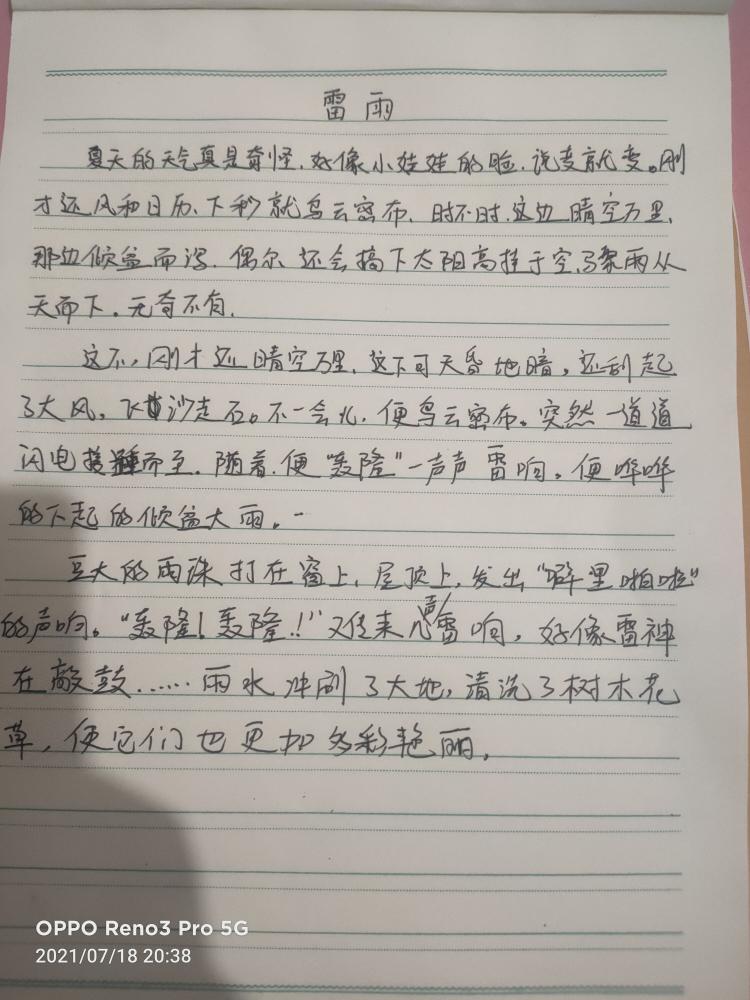 雷雨
夏天的天气真是奇怪，好像小娃娃的脸，说变就变。刚
才还风和日历，下秒就乌云密布，时不时，这边晴空万里，
那边倾盆而泻，偶尔还会搞下太阳高挂于空，暴雨从
天而下，无奇不有，
这不，刚才还晴空万里，这下可天昏地暗，还刮起
了大风，飞沙走石。不一会儿，便乌云密布。突然一道道
闪电接踵而至，随着，便“轰隆”一声声雷响，便哗哗
的下起的倾盆大雨。
豆大的雨珠打在窗上，屋顶上，发出“噼里啪啦”
的声响。“轰隆！轰隆！！”又传来几声雷响，好像雷神
在敲鼓……雨水冲刷了大地，清洗了树木花
草，使它们也更加多彩艳丽。
OPPO Reno3 Pro 5G
2021/07/18 20:38